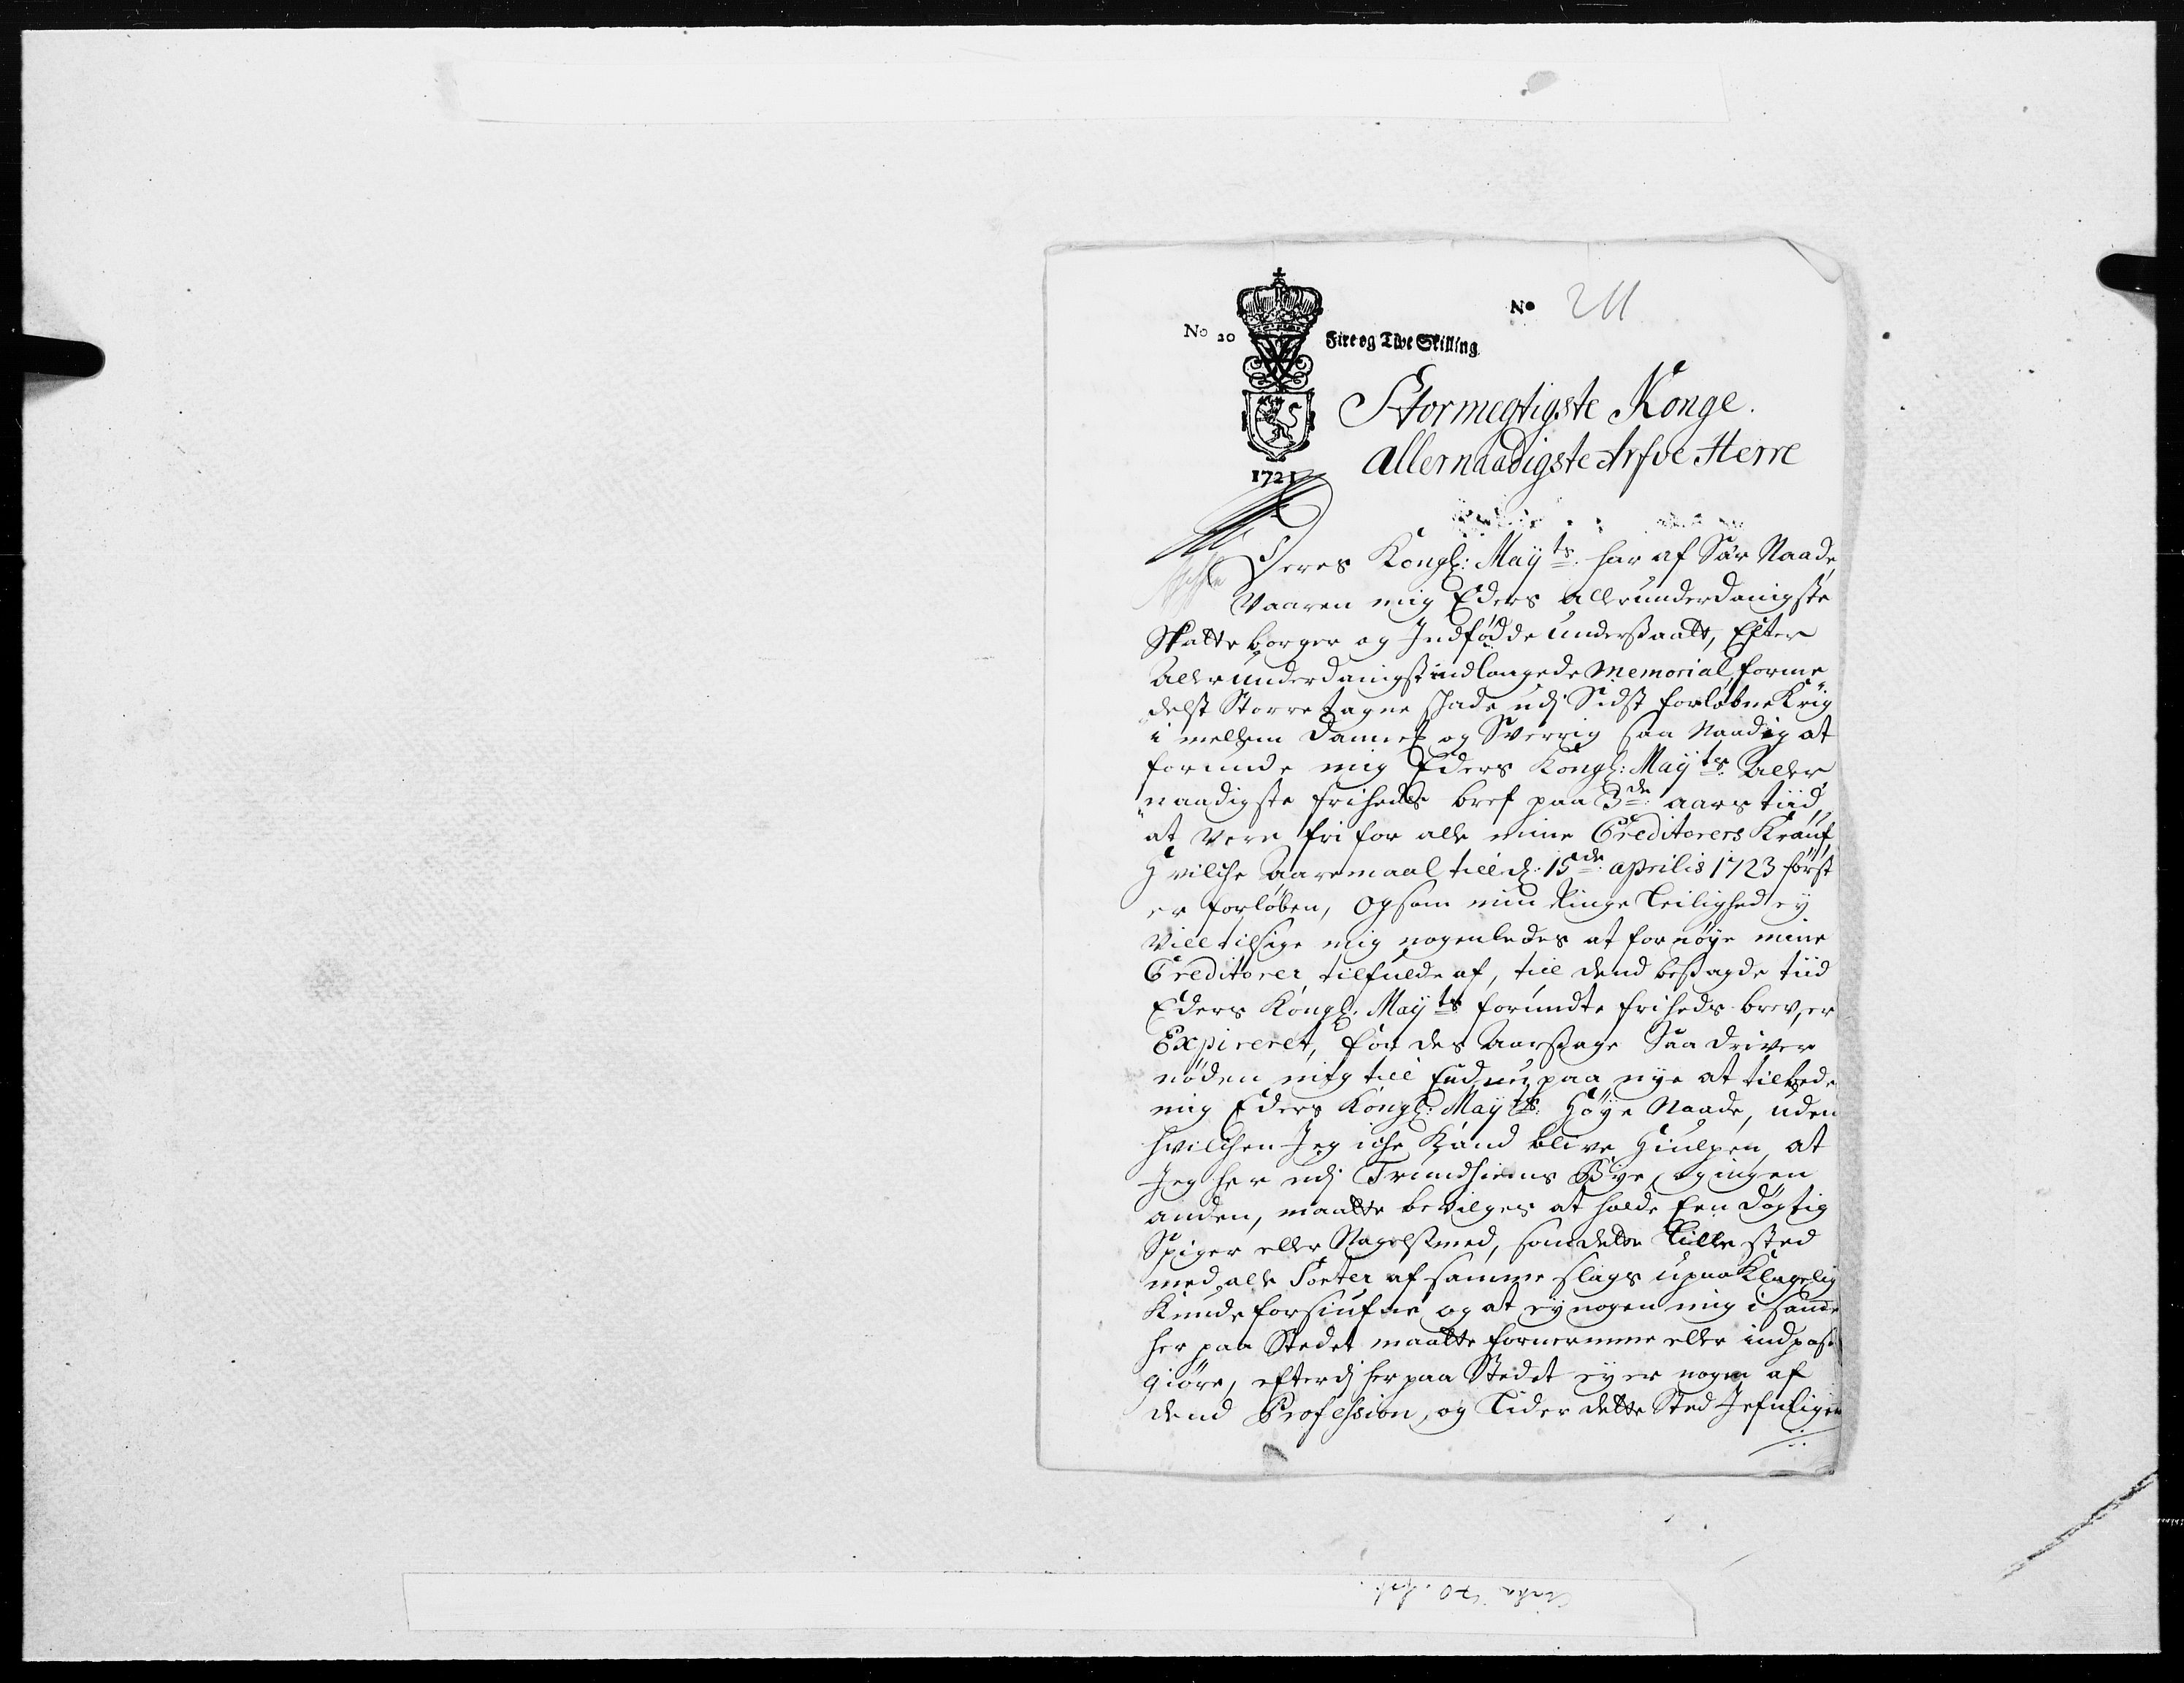 No 211
No 20
Fire og Tive Skilling
1721
Stormegtigste Konge.
Allernaadigste Arfve Herre
Deres Kongl: Mayts. har af Sær Naade
Vaaren mig Eders allerunderdanigste
Skatte borger og Indfødde undersaatt, Efter
allerunderdanigst indlangede Memorial, forme
delst Storre tagne skade udj Sidst forløbne Krig
i mellem Dannek og Sverrig saa Naadig at
forunde mig Eders Kongl: Mayts. Aller
naadigste friheds bref paa 3de aars tiid,
at være fri for alle mine Creditorers Krauf,
Hvilche Aaremaal till d. 15de Aprilis 1723 først
er forløben, og som min Ringe Leilighed ey
Vill tilsige mig nogenledes at fornøye mine
Creditorer tilfulde af, till dend besagde tiid
Eders Kongl. Mayts forundte friheds brev, er
Expireret, for des Aarsage Saa driver
nøden mig till Endnu paa nye at tilbede
mig Eders Kongl: Mayts: Høye Naade, uden
hvilchen Jeg iche Kand blive Hiulpen, at
Jeg her udj Trundhiems Bye, og ingen
anden, maatte bevilges at holde Een døgtig
Spiger eller Nagelsmed, som dette lille sted
med alle Sorter af samme slags upaaKlagelig
Kunde forsiufne og at ey nogen mig i samme
her paa Stedet maatte fornermme eller indpas
giøre, efterdj her paa Stedet ey er nogen af
dend Profession, og Lider dette Sted